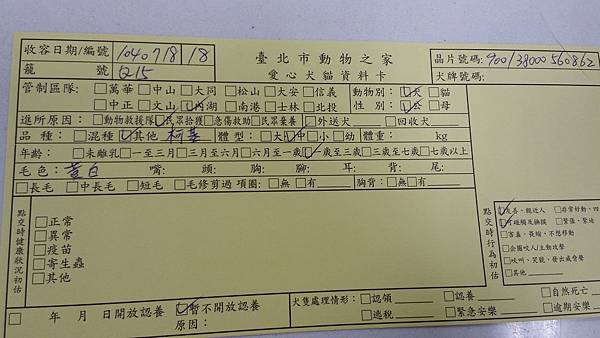 收容日期/編號 1040718 18 臺北市動物之家 晶片號碼: 900/38000560862
籠 號 Q15 愛心犬貓資料卡 犬牌號碼:
管制區隊: □萬華 □中山 □大同 □松山 □大安 □信義 動物別: ☑犬 □貓
□中正 □文山 ☑內湖 □南港 □士林 □北投 性 別: ☑公 □母
進所原因: □動物救援隊 ☑民眾拾獲 □急傷救助 □民眾棄養 □外送犬 □回收犬
品 種: □混種 ☑其他 柯基 體 型: □大 ☑中 □小 □幼 體重: kg
年齡: □未離乳 □一至三月 □三月至六月 □六月至一歲 ☑一歲至三歲 □三歲至七歲 □七歲以上
毛色: 黃白 嘴: 頭: 胸: 腳: 耳: 背: 尾:
□長毛 □中長毛 □短毛 □毛修剪過 項圈: □無 □有 胸背: □無 □有
點交時健康狀況初估
□正常
□異常
□疫苗
□寄生蟲
□其他
點交時行為初估
☑友善、親近人 □非常好動、四
☑可碰觸及撫摸 □緊張、緊迫
□害羞、畏縮、不想移動
□企圖咬人/主動攻擊
□吠叫、哭號、發出威脅聲
□其他
□ 年 月 日開放認養 ☑暫不開放認養 原因:
犬隻處理情形: □認領 □認養 □自然死亡
□逃脫 □緊急安樂 □逾期安樂